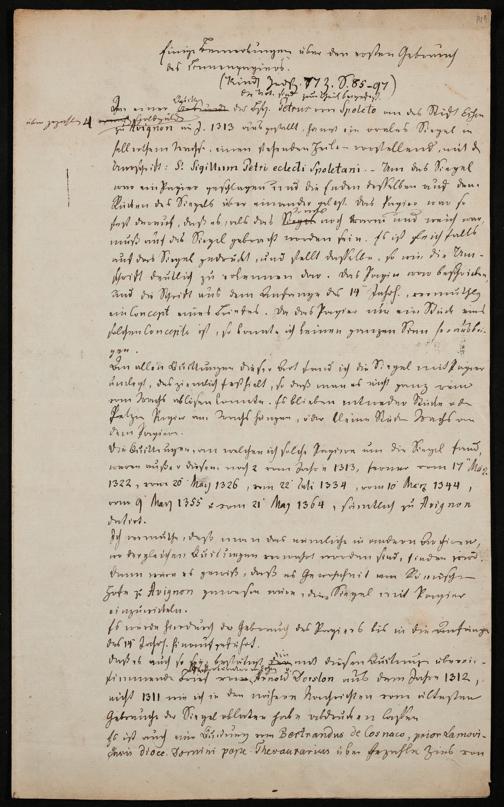 Einige Bemerkungen über den ersten Gebrauch
des Linnenpapiers.
(Kind. Zeitsch. 173. S. 85-97)
An einer Quittung des Petrus von Spoleto an die Stadt
zu Avignon a. J. 1313 ausgestellt, hängt ein ovales Siegel in
Wachs, einen stehenden vorstellend, mit der
Umschrift: S. Sigillum Petri electi Spoletani. - Um das Siegel
war ein Papier geschlagen und die Enden desselben auf dem
Rücken des Siegels über einander gelegt. Das Papier war so
fest darauf, daß es, als das Wachs noch warm und weich war,
muß auf das Siegel gebracht worden sein. Es ist gleichfalls
auf das Siegel gedruckt, und stellt dasselbe, so wie die Um-
schrift deutlich zu erkennen dar. Das Papier war beschrieben,
und die Schrift aus dem Anfange des 14 Jahrh., vermuthlich
ein Concept eines Briefes. Da das Papier nur ein Stück eines
solchen Concepts ist, so konnte ich keinen ganzen Sinn herausbrin-
gen.
An allen Quittungen dieser Art fand ich die Siegel mit Papier
umlegt, das ziemlich fest hält, so daß man es nicht ganz rein
vom Wachs ablösen konnte. Es blieben entweder Stücke oder
Fetzen Papier am Wachs hangen, oder kleine Stücke Wachs an
dem Papier.
Die Quittungen, an welchen ich solche Papiere um die Siegel fand,
waren außer diesen noch 2 vom Jahre 1313, ferner vom 17 März
1322, vom 20 May 1326, vom 22 Juli 1334, vom 10 März 1344,
vom 9 März 1355 u vom 21 May 1364, sämtlich zu Avignon
datirt.
Ich vermuthe, daß man das nämliche in andern Archiven,
wo dergleichen Quittungen verwahrt worden sind, finden wird.
Dann wäre es gewiß, daß es Gewohnheit am Römischen
Hofe zu Avignon gewesen wäre, die Siegel mit Papier
einzuwickeln.
Es würde hierdurch der Gebrauch des Papiers bis in die Anfänge
des 14 Jahrh. hinaufgeführt.
daß es auch so sey, bestätigt mit diesen Quittungen überein-
stimmende Brief von Arnold Dorslon aus dem Jahre 1312,
nicht 1311 wie ich in den nähern Nachrichten vom ältesten
Gebrauche der Siegeloblaten habe abdrucken lassen.
Es ist auch eine Quittung von Bertrandus de Cosnaco, prior Lemovi-
dioce. Domini pape Thesaurarius über bezahlte Zins von